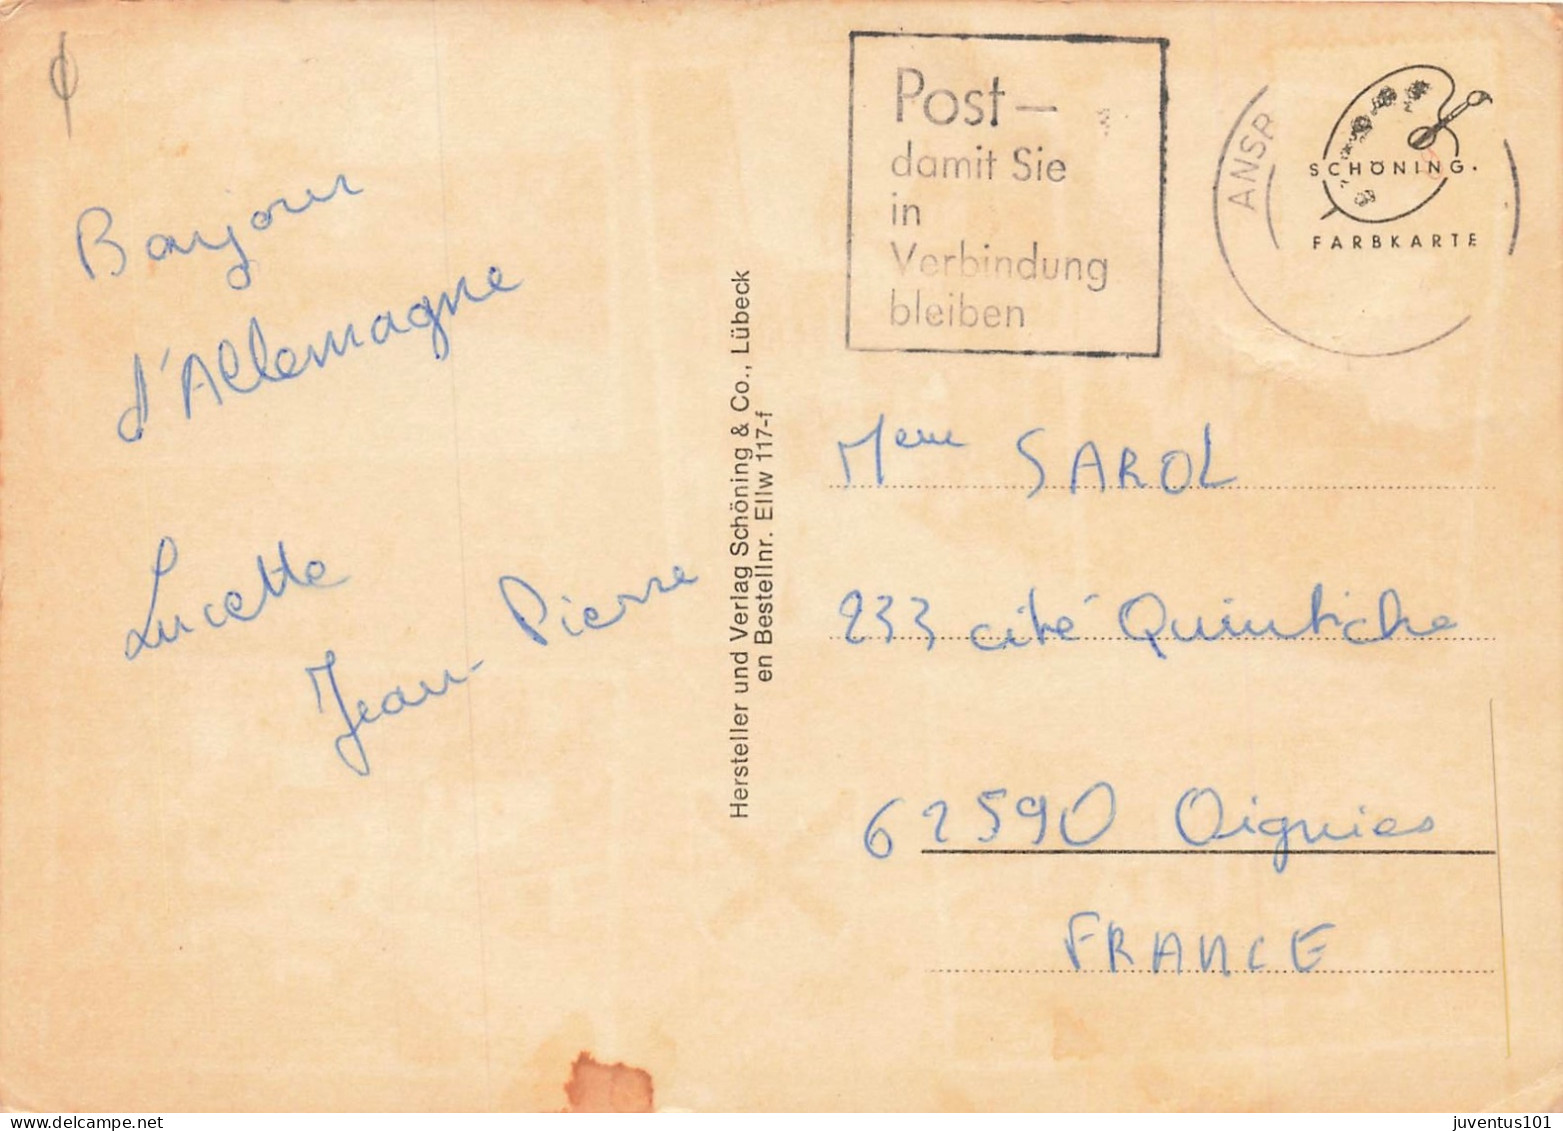 Bonjour
d'Allemagne
Lucette
Jean-Pierre
Hersteller und Verlag Schöning & Co., Lübeck
en Bestellnr. Ellw 117-f
Post –
damit Sie
in
Verbindung
bleiben
ANSP
SCHÖNING.
FARBKARTE
Mme SAROL
233 cité Quintiche
62590 Oignies
FRANCE
delcampe.net
juventus101